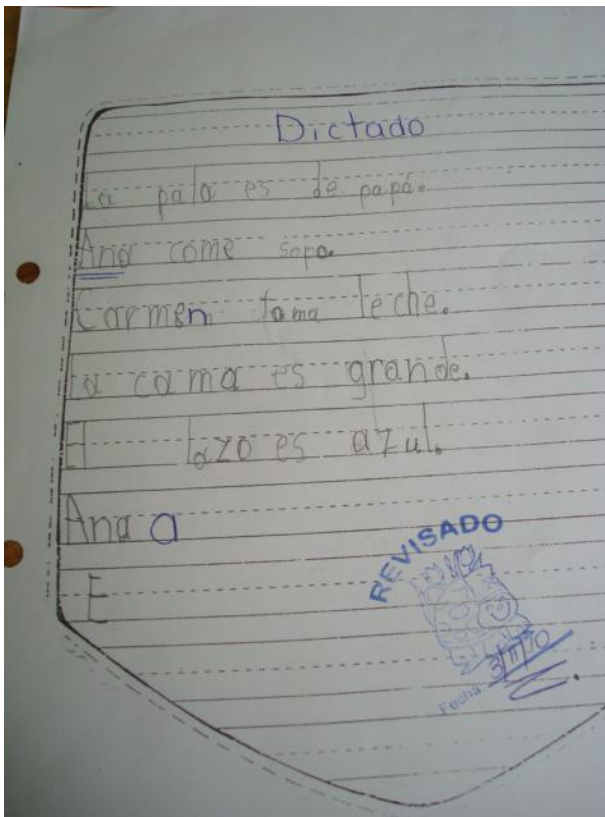 Dictado
La pala es de papá.
Ana come sopa.
Carmen toma leche.
La cama es grande.
El lazo es azul.
Ana a
E
REVISADO
Fecha 3/11/10